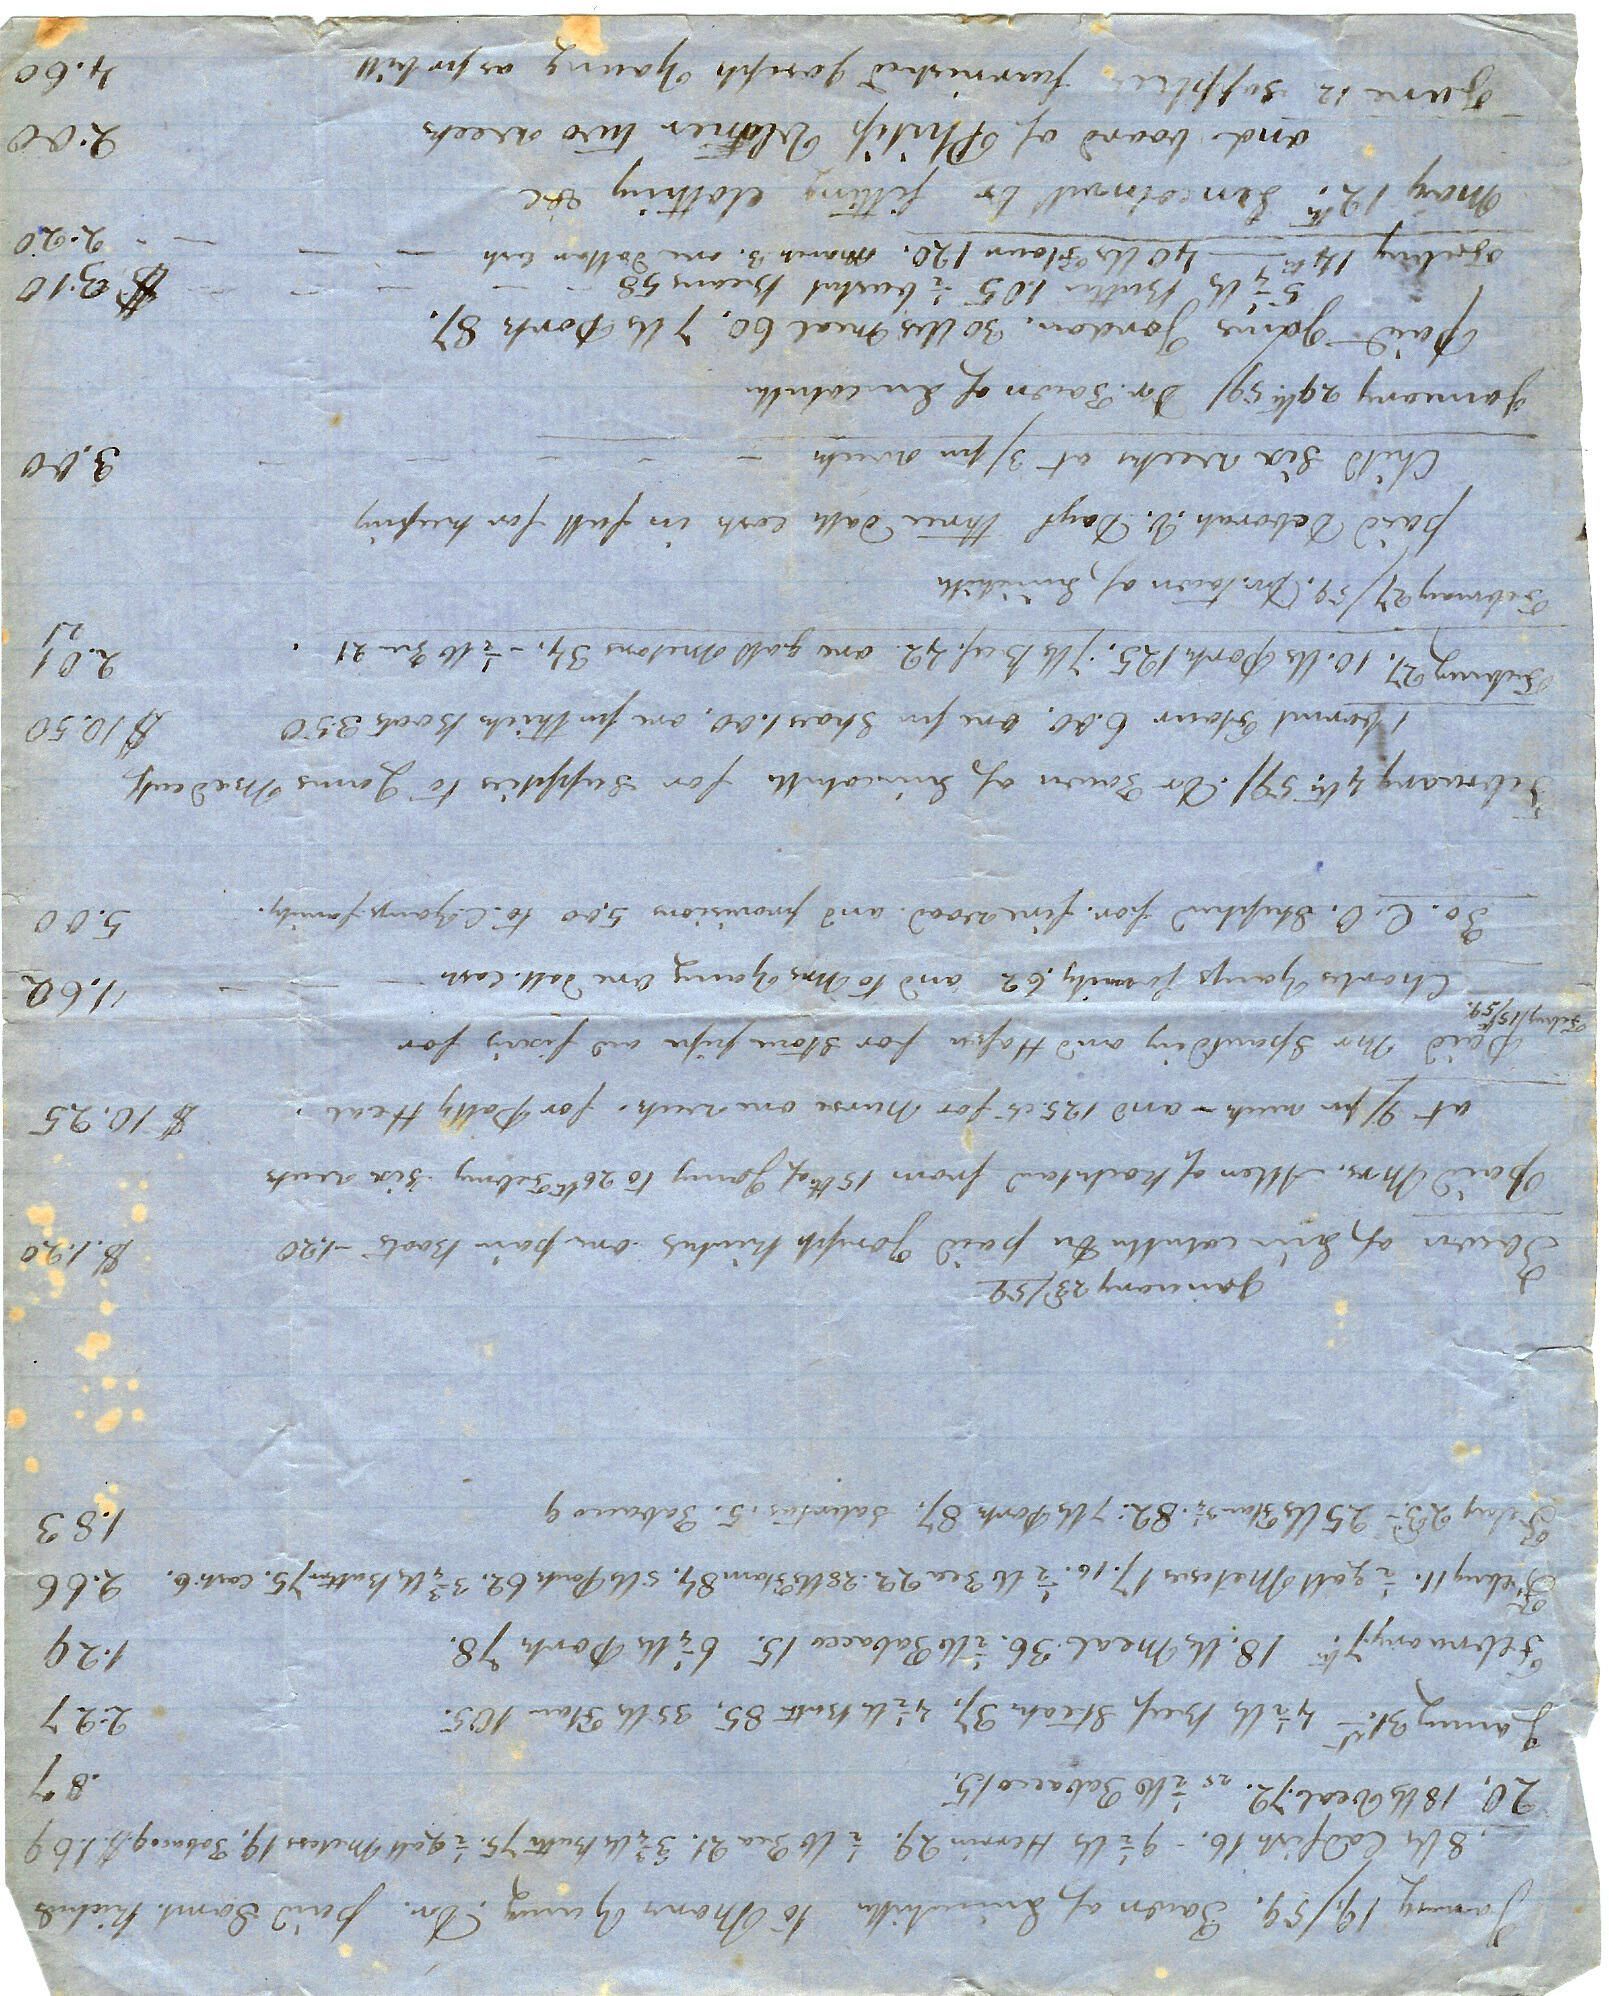 January 19/59. Town of Lincolnville to Mary Young. Dr. paid Saml.
8 lbs Codfish 16 - 9½ lbs Herrin 29. ½ lb Tea 21. 3¾ lbs Butter 75. ½ gall Melases 19. Tobacco 9. $1.69
20. 18 lbs Veal. 72. ½ lb Tobacco 15. .87
January 31st 4½ lbs Beef Steak 37. 4½ lb Butter 85. 35 lbs Flour 105. 2.27
February 7th 18. lbs Meal. 36. ½ lb Tobacco 15. 6¼ lbs Pork 78. 1.29
Febuy 11. ½ gall Melases 17. ½ lb Tea 22. 28 lbs Flour 84. 5 lbs Pork 62. 3¾ lbs Butter 75. cash. 6. 2.66
Febuy 23d - 25 lbs Flour 82. 7 lbs Pork 87. Saleratus. 5. Tobacco 9 1.83
January 23/59
Town of Lincolnville Dr paid Joseph one pair Boots - 1.20 $1.20
paid Mrs. Allen of Rockland from 15th of Janny to 26th Febuy six weeks
at 9/ pr week - and 125 cts for Nurse one week. for Polly Heal. $10.25
Febuy 15th/59.
paid Mr Spaulding and for Stove pipe and fixing for
Charles Youngs family. 62 and to Mrs Young One doll. cash - - - 1.62
To. C. C. for. fire wood and provisions 5,00 to C. Youngs family. 5.00
February 4th 59/. Dr Town of Lincolnville for Supplies to James
1 barrel Flour 6.00. one pr Shoes 1.00. one pr thick Boots 3.50 $10.50
February 27. 10. lbs Pork. 125. 7 lbs Beef. 42. one gall Melases 34. - ½ lb Tea 21 . 2.01
21
February 27/59. Dr. Town of Lincolnville
paid Deborah D. Day three dolls cash in full for keeping
Child six weeks at 3/ pr week - - - - - - 3.00
January 29th 59/ Dr. Town of Lincolnville
paid James Jordan. 30 lbs Meal 60. 7 lbs Pork 87.
5¼ lbs Butter 1.05 ½ bushel Beans 58 - - - - - $3.10
Febuy 14th. - 40 lbs Flour 120. March 3. one dollar cash - - - - 2.20
May 12th. Lincolnvill Dr fitting Clothing &c
and. board of Philip two weeks 2.00
June 12 Supplies furnished Joseph Young as pr bill 4.60